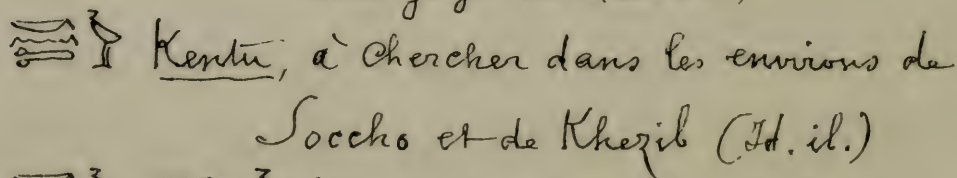 𓎡𓈖𓍿𓅱 Kentu, à chercher dans les environs de
Soccho et de Khezib (Id. il.)